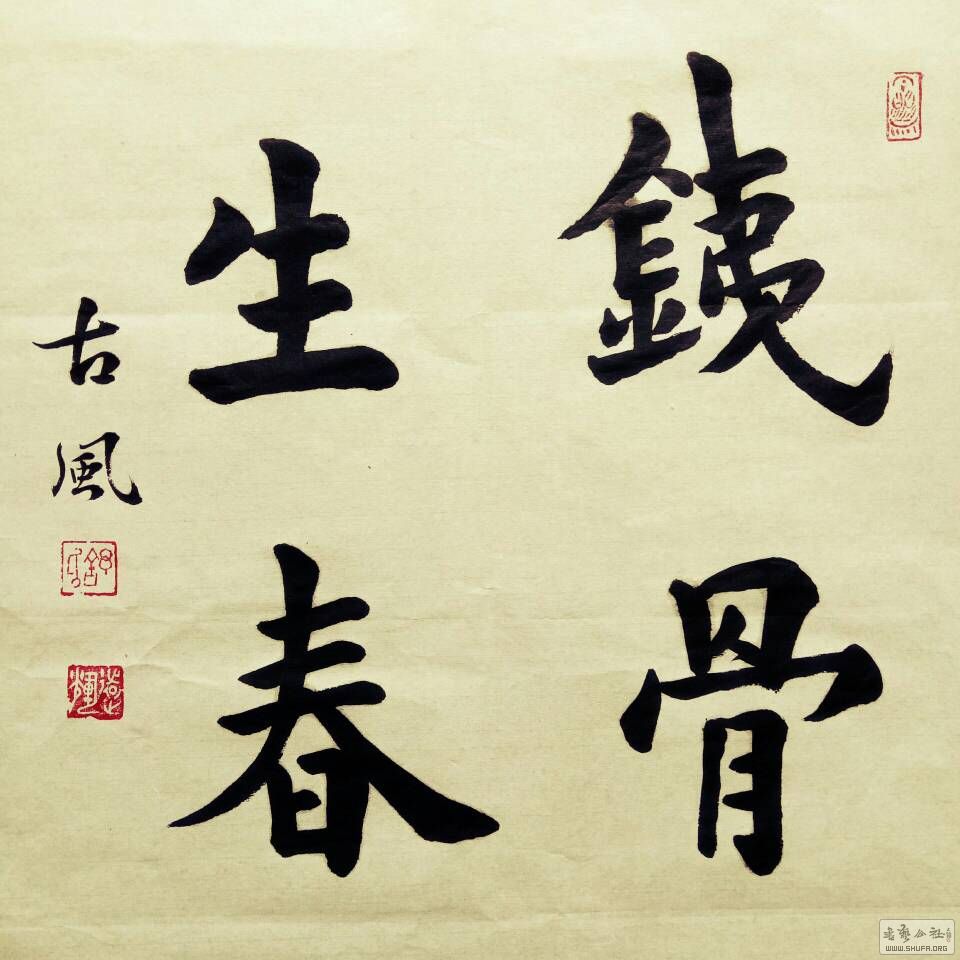 銕骨
生春
古風
书艺公社
WWW.SHUFA.ORG